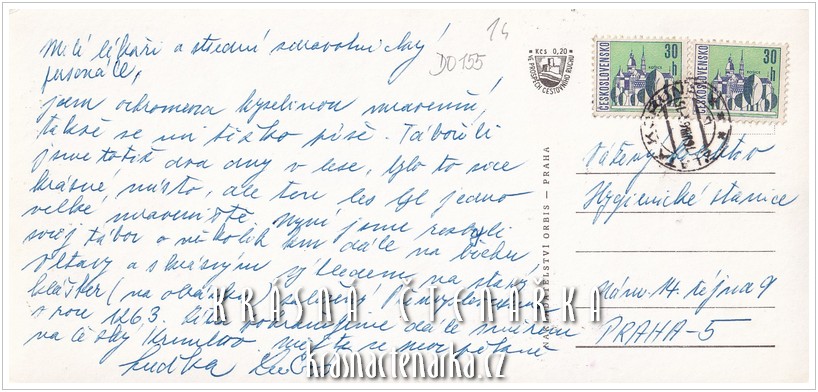 14
DO155
Milí lékaři a střední zdravotnický
personále,
jsem ochromena kyselinou mravenčí,
takže se mi těžko píše. Tábořili
jsme totiž dva dny v lese, bylo to sice
krásné místo, ale ten les byl jedno
velké mraveniště. Nyní jsme rozbili
svůj tábor o několik km dále na břehu
Vltavy a s krásným výhledem na starý
klášter (na obrázku
z roku 1263. Zítra pokračujeme dále směrem
na Český Krumlov. Mějte se moc pěkně
Luďka
Kčs 0,20
VE PROSPĚCH CESTOVNÍHO RUCHU
ČESKOSLOVENSKO
30 h
ČESKOSLOVENSKO
30 h
NAKLADATELSTVÍ ORBIS — PRAHA
Vážený
Hygienické stanice
Nám. 14. října 9
PRAHA-5
KRÁSNÁ ČTENÁŘKA
krasnactenarka.cz